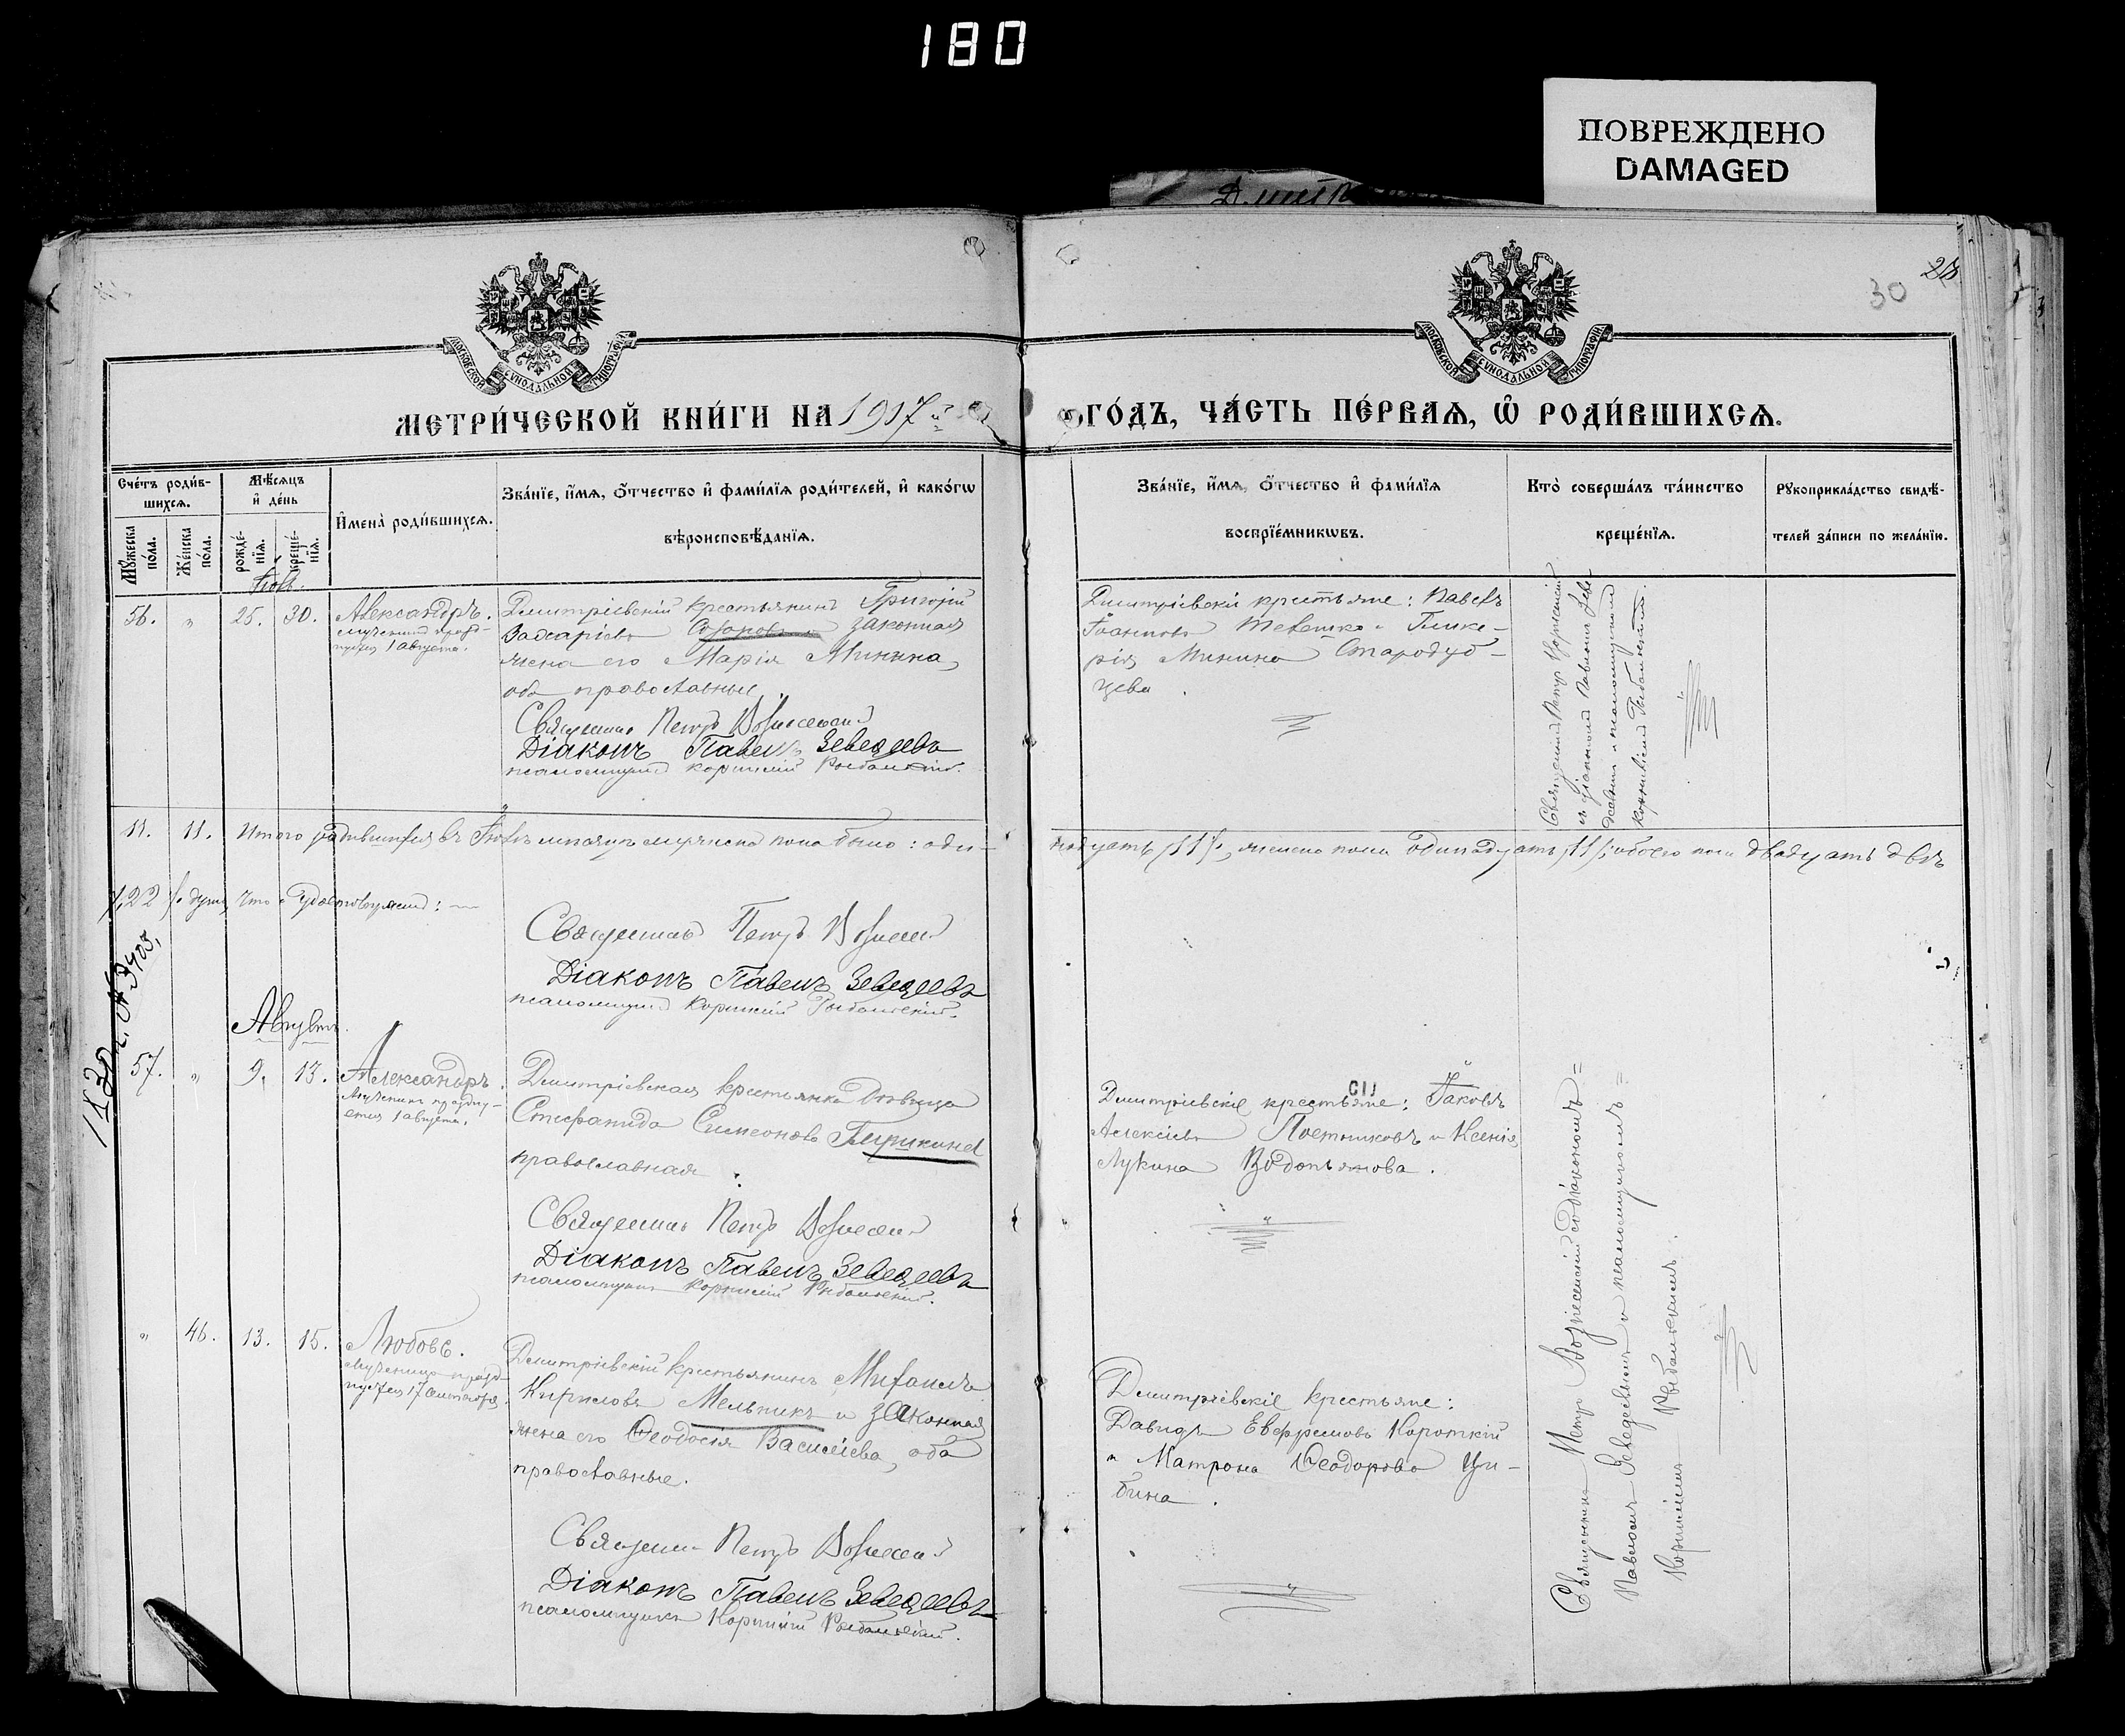 180
ПОВРЕЖДЕНО
DAMAGED
30
28
МОСКОВСКОЙ СѴНОДАЛЬНОЙ ТИПОГРАФІИ
МОСКОВСКОЙ СѴНОДАЛЬНОЙ ТИПОГРАФІИ
МЕТРИ́ЧЕСКОЙ КНИ́ГИ НА 1917й
ГО́ДЪ, ЧА́СТЬ ПЕ́РВАѦ, Ѡ҆ РОДИ́ВШИХСѦ.
Сче́тъ роди́в-
шихсѧ.
Мꙋ́жеска по́ла.
Же́нска по́ла.
Мѣ́сѧцъ
и҆ де́нь
рожде́-
нїѧ.
креще́-
нїѧ.
И҆мена̀ роди́вшихсѧ.
Зва́нїе, и҆́мѧ, ѻ҆́тчество и҆ фами́лїѧ роди́телей, и҆ како́гѡ
вѣроисповѣ́данїѧ.
Зва́нїе, и҆́мѧ, ѻ҆́тчество и҆ фами́лїѧ
воспрїе́мникѡвъ.
Кто̀ соверша́лъ та́инство
креще́нїѧ.
Рꙋкоприкла́дство свидѣ́-
телей за́писи по жела́нїю.
Іюль.
56. " 25. 30. Александръ.
мученикъ празд-
нуется 1 августа.
Дмитріевскій крестьянинъ Григорій
Захаріевъ и законная
жена его Марія Минина,
оба православные.
Священникъ Петръ Вознесенскій
Діаконъ Павелъ Зеведеевъ
псаломщикъ Корнилій Рыбальскій.
Дмитріевскіе крестьяне: Павелъ
Іоанновъ и Глике-
рія Минина Стародуб-
цева.
Священникъ Петръ Вознесенскій
съ діакономъ Павломъ Зеве-
деевымъ и псаломщикомъ
Корниліемъ Рыбальскимъ.
11. 11. Итого родившихся въ Іюлѣ мѣсяцѣ мужеска пола было: оди-
надцать /11/, женска пола одинадцать /11/, обоего пола двадцать двѣ
/22/ души, что и удостовѣряемъ: —
Священникъ Петръ Вознесенскій
Діаконъ Павелъ Зеведеевъ
псаломщикъ Корнилій Рыбальскій.
Августъ.
57. " 9. 13. Александръ.
Мученикъ праздну-
ется 1 августа.
Дмитріевская крестьянка дѣвица
Стефанида Симеонова
православная.
Священникъ Петръ Вознесенскій
Діаконъ Павелъ Зеведеевъ
псаломщикъ Корнилій Рыбальскій.
Дмитріевскіе крестьяне: Іаковъ
Алексіевъ Постниковъ и Ксенія
Лукина Водопьянова.
" 46. 13. 15. Любовь.
Мученица празд-
нуется 17 сентября.
Дмитріевскій крестьянинъ Михаилъ
Кириловъ Мельникъ и законная
жена его Ѳеодосія Василіева, оба
православные.
Священникъ Петръ Вознесенскій
Діаконъ Павелъ Зеведеевъ
псаломщикъ Корнилій Рыбальскій.
Дмитріевскіе крестьяне:
Давидъ Евфремовъ Короткій
и Матрона Ѳеодорова Ци-
бина.
Священникъ Петръ Вознесенскій съ діакономъ=
Павломъ Зеведеевымъ и псаломщикомъ=
Корниліемъ Рыбальскимъ.